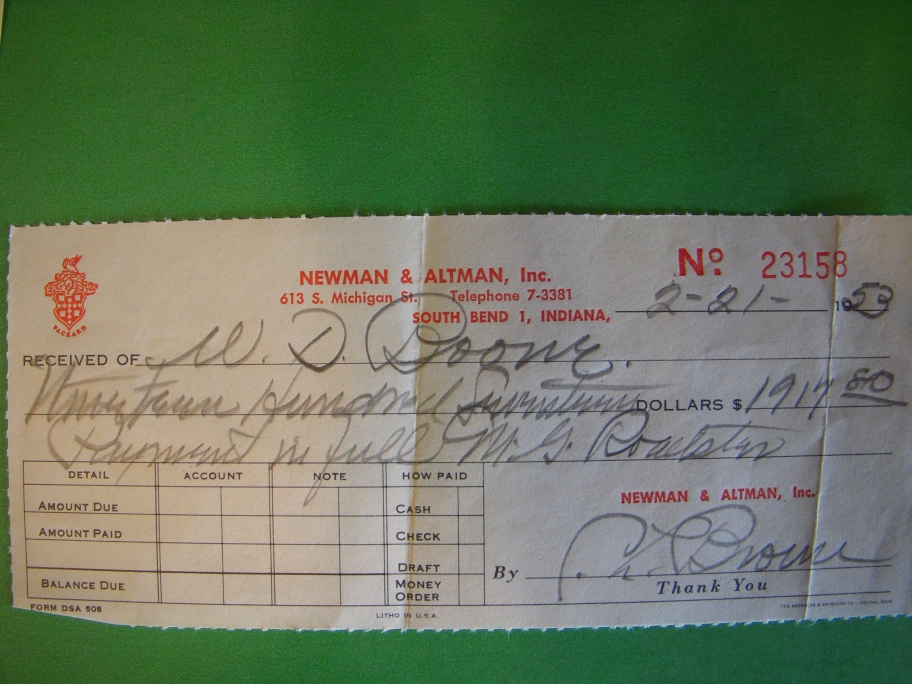 PACKARD
NEWMAN & ALTMAN, Inc.
613 S. Michigan St. Telephone 7-3381
SOUTH BEND 1, INDIANA, 2-21- 1953
Nº 23158
RECEIVED OF W. D. Boone.
Nineteen Hundred Seventeen DOLLARS $ 1917 80
Payment in full M.G. Roadster
DETAIL ACCOUNT NOTE HOW PAID
AMOUNT DUE CASH
AMOUNT PAID CHECK
DRAFT
BALANCE DUE MONEY ORDER
NEWMAN & ALTMAN, Inc.
By
Thank You
FORM DSA 508
LITHO IN U.S.A.